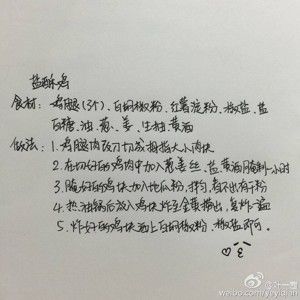 盐酥鸡
食材：鸡腿（3个）、白胡椒粉、红薯淀粉、椒盐、盐
白糖、油、葱、姜、生抽、黄酒
做法：1. 鸡腿肉改刀切成拇指大小肉块
2. 在切好的鸡肉中加入葱姜丝、盐、黄酒腌制一小时
3. 腌好的鸡块加入地瓜粉，拌匀，看不出有干粉
4. 热油锅后放入鸡块炸至金黄捞出，复炸一遍
5. 炸好的鸡块洒上白胡椒粉，椒盐即可。
weibo.com/yeyidian